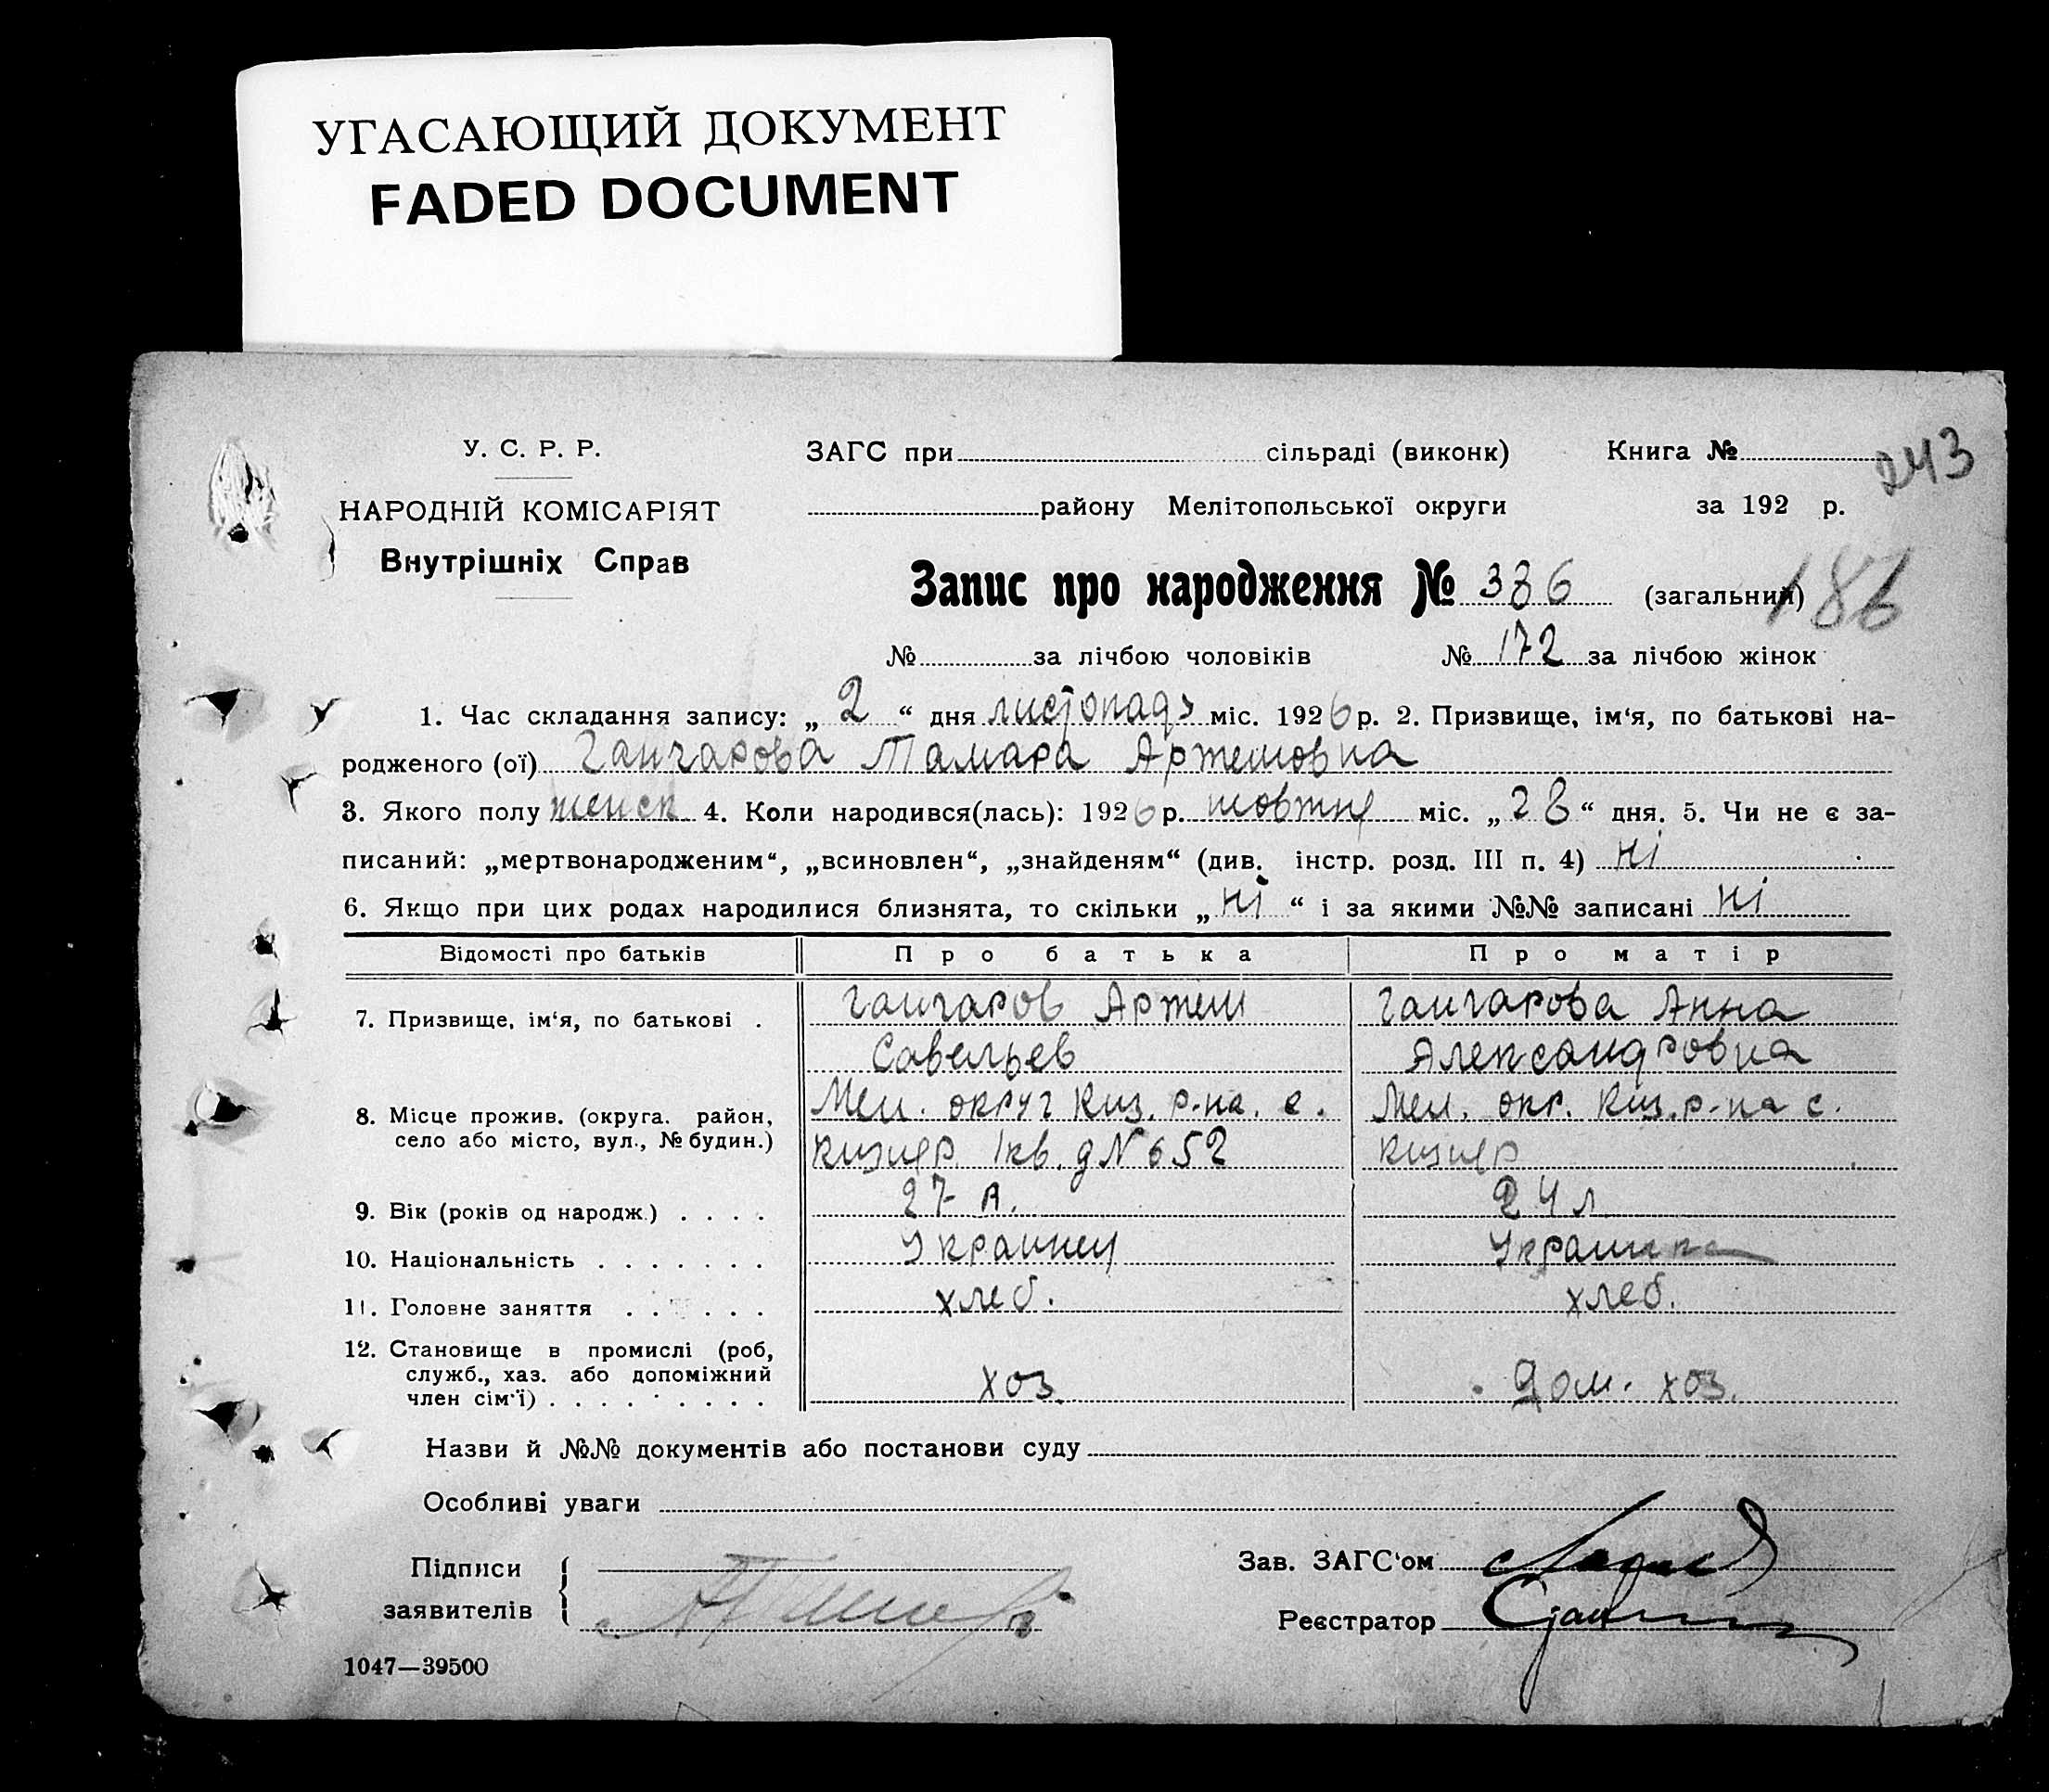 УГАСАЮЩИЙ ДОКУМЕНТ
FADED DOCUMENT
У. С. Р. Р.
НАРОДНІЙ КОМІСАРІЯТ
Внутрішніх Справ
ЗАГС при сільраді (виконк)
району Мелітопольської округи
Книга №
243
за 192 р.
Запис про народження № 336 (загальний)
186
№ за лічбою чоловіків № 172 за лічбою жінок
1. Час складання запису: „ 2 “ дня листопада міс. 1926 р. 2. Призвище, ім‘я, по батькові на-
родженого (ої) Ганчарова Тамара Артемовна
3. Якого полу женск 4. Коли народився(лась): 1926 р. жовтня міс. „ 28 “ дня. 5. Чи не є за-
писаний: „мертвонародженим“, „всиновлен“, „знайденям“ (див. інстр. розд. III п. 4) ні
6. Якщо при цих родах народилися близнята, то скільки „ ні “ і за якими №№ записані ні
Відомості про батьків Про батька Про матір
7. Призвище, ім‘я, по батькові . Ганчаров Артем Ганчарова Анна
Савельев Александровна
8. Місце прожив. (округа. район, Мел. округ Киз. р-на. с. Мел. окр. Киз. р-на с.
село або місто, вул., № будин.) Кизияр 1 кв. д N 652 Кизияр
9. Вік (років од народж.) . . . . 27 л. 24 л
10. Національність . . . . . . . Украинец Украинка
11. Головне заняття . . . . . . хлеб. хлеб.
12. Становище в промислі (роб,
служб., хаз. або допоміжний хоз. дом. хоз.
член сім‘ї) . . . . . . . . .
Назви й №№ документів або постанови суду
Особливі уваги
Підписи
заявителів
Зав. ЗАГС‘ом
Реєстратор
1047—39500